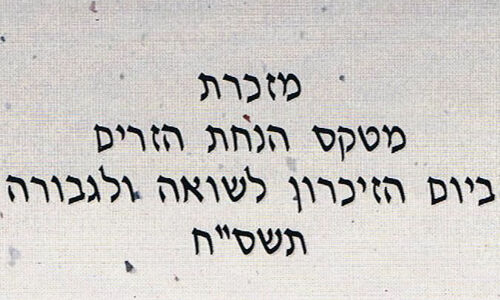 מזכרת
מטקס הנחת הזרים
ביום הזיכרון לשואה ולגבורה
תשס"ח